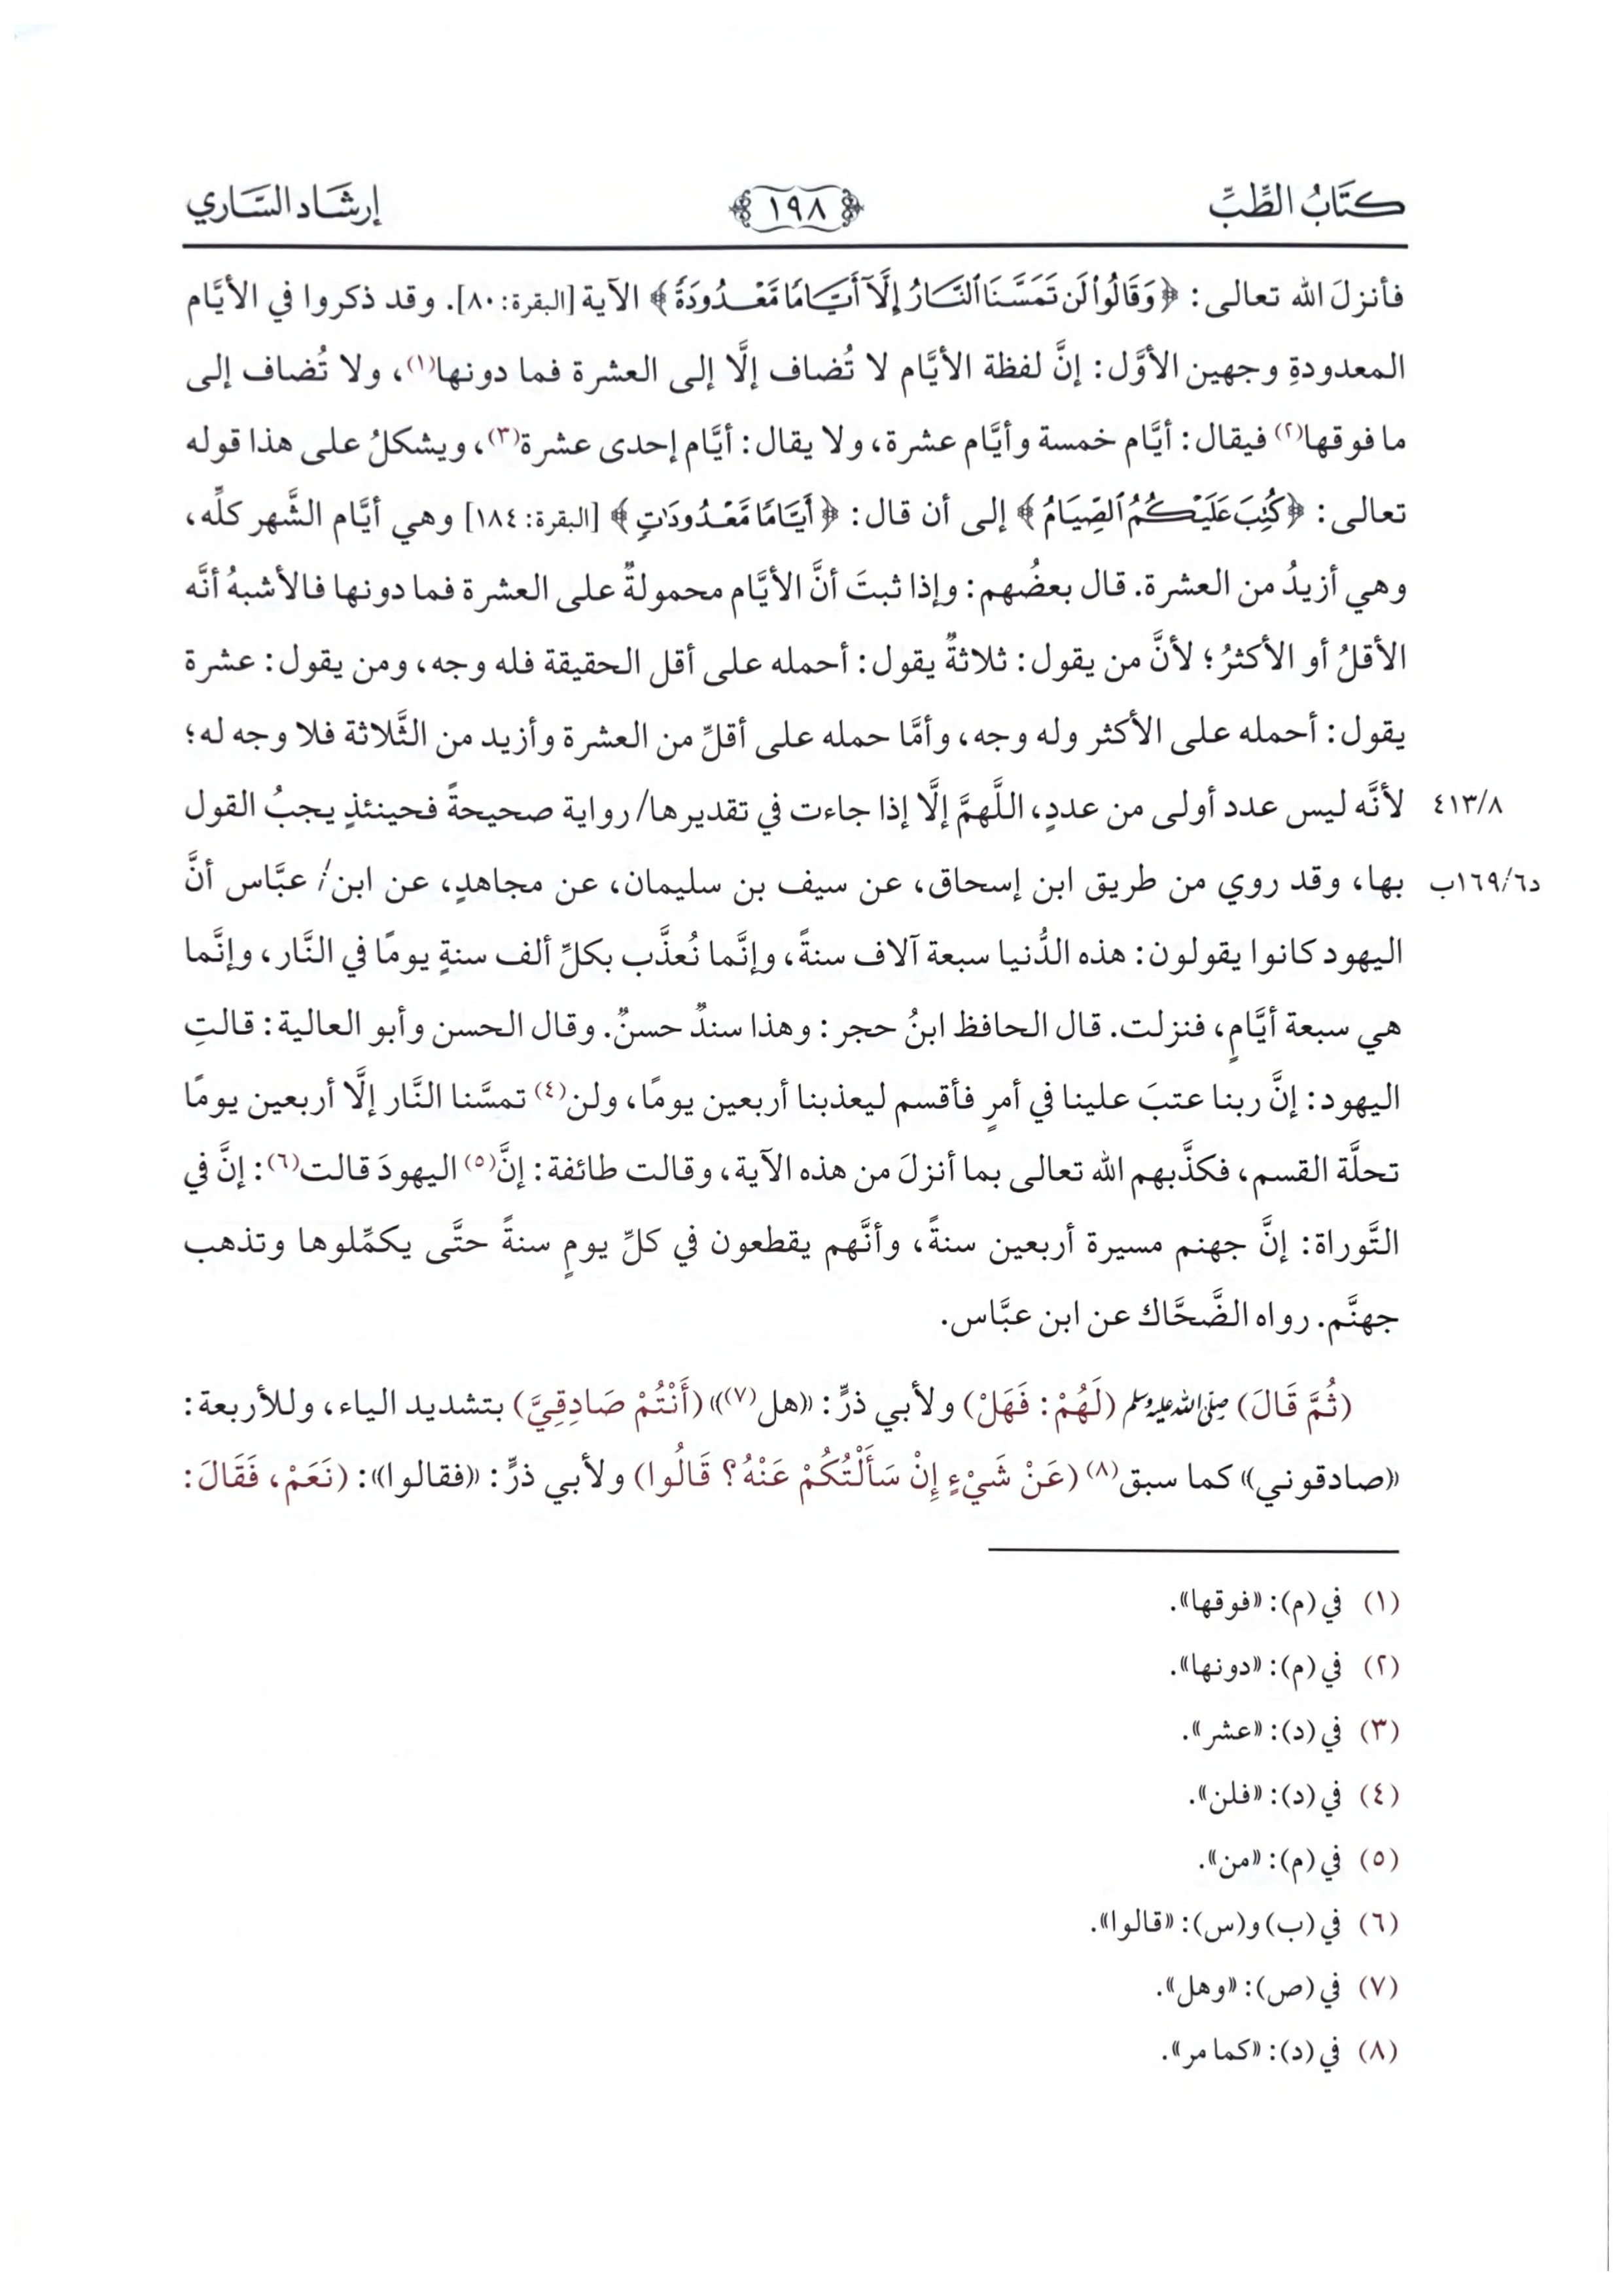 كتَابُ الطِّبِّ
﴿١٩٨﴾
إرشَاد السَّاري
فأنزلَ الله تعالى: ﴿وَقَالُوا۟ لَن تَمَسَّنَا ٱلنَّارُ إِلَّآ أَيَّامًا مَّعْدُودَةً﴾ الآية [البقرة: ٨٠]. وقد ذكروا في الأيَّام
المعدودةِ وجهين الأوَّل: إنَّ لفظة الأيَّام لا تُضاف إلَّا إلى العشرة فما دونها(١)، ولا تُضاف إلى
ما فوقها(٢) فيقال: أيَّام خمسة وأيَّام عشرة، ولا يقال: أيَّام إحدى عشرة(٣)، ويشكلُ على هذا قوله
تعالى: ﴿كُتِبَ عَلَيْكُمُ ٱلصِّيَامُ﴾ إلى أن قال: ﴿أَيَّامًا مَّعْدُودَٰتٍ﴾ [البقرة: ١٨٤] وهي أيَّام الشَّهر كلِّه،
وهي أزيدُ من العشرة. قال بعضُهم: وإذا ثبتَ أنَّ الأيَّام محمولةٌ على العشرة فما دونها فالأشبهُ أنَّه
الأقلُ أو الأكثرُ؛ لأنَّ من يقول: ثلاثةٌ يقول: أحمله على أقل الحقيقة فله وجه، ومن يقول: عشرة
يقول: أحمله على الأكثر وله وجه، وأمَّا حمله على أقلِّ من العشرة وأزيد من الثَّلاثة فلا وجه له؛
لأنَّه ليس عدد أولى من عددٍ، اللَّهمَّ إلَّا إذا جاءت في تقديرها/ رواية صحيحةً فحينئذٍ يجبُ القول
٤١٣/٨
بها، وقد روي من طريق ابن إسحاق، عن سيف بن سليمان، عن مجاهدٍ، عن ابن/ عبَّاس أنَّ
د١٦٩/٦ب
اليهود كانوا يقولون: هذه الدُّنيا سبعة آلاف سنةً، وإنَّما نُعذَّب بكلِّ ألف سنةٍ يومًا في النَّار، وإنَّما
هي سبعة أيَّامٍ، فنزلت. قال الحافظ ابنُ حجر: وهذا سندٌ حسنٌ. وقال الحسن وأبو العالية: قالتِ
اليهود: إنَّ ربنا عتبَ علينا في أمرٍ فأقسم ليعذبنا أربعين يومًا، ولن(٤) تمسَّنا النَّار إلَّا أربعين يومًا
تحلَّة القسم، فكذَّبهم الله تعالى بما أنزلَ من هذه الآية، وقالت طائفة: إنَّ(٥) اليهودَ قالت(٦): إنَّ في
التَّوراة: إنَّ جهنم مسيرة أربعين سنةً، وأنَّهم يقطعون في كلِّ يومٍ سنةً حتَّى يكمِّلوها وتذهب
جهنَّم. رواه الضَّحَّاك عن ابن عبَّاس.
(ثُمَّ قَالَ) صلى الله عليه وسلم (لَهُمْ: فَهَلْ) ولأبي ذرٍّ: «هل(٧)» (أَنْتُمْ صَادِقِيَّ) بتشديد الياء، وللأربعة:
«صادقوني» كما سبق(٨) (عَنْ شَيْءٍ إِنْ سَأَلْتُكُمْ عَنْهُ؟ قَالُوا) ولأبي ذرٍّ: «فقالوا»: (نَعَمْ، فَقَالَ:
(١) في (م): «فوقها».
(٢) في (م): «دونها».
(٣) في (د): «عشر».
(٤) في (د): «فلن».
(٥) في (م): «من».
(٦) في (ب) و(س): «قالوا».
(٧) في (ص): «وهل».
(٨) في (د): «كما مر».